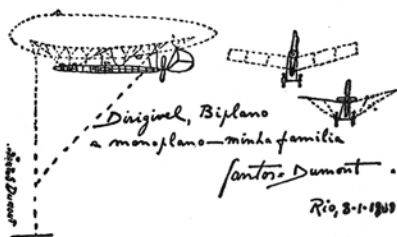 Dirigivel, Biplano
e monoplano—minha familia
Santos=Dumont.
Rio, 3-1-19
Santos Dumont